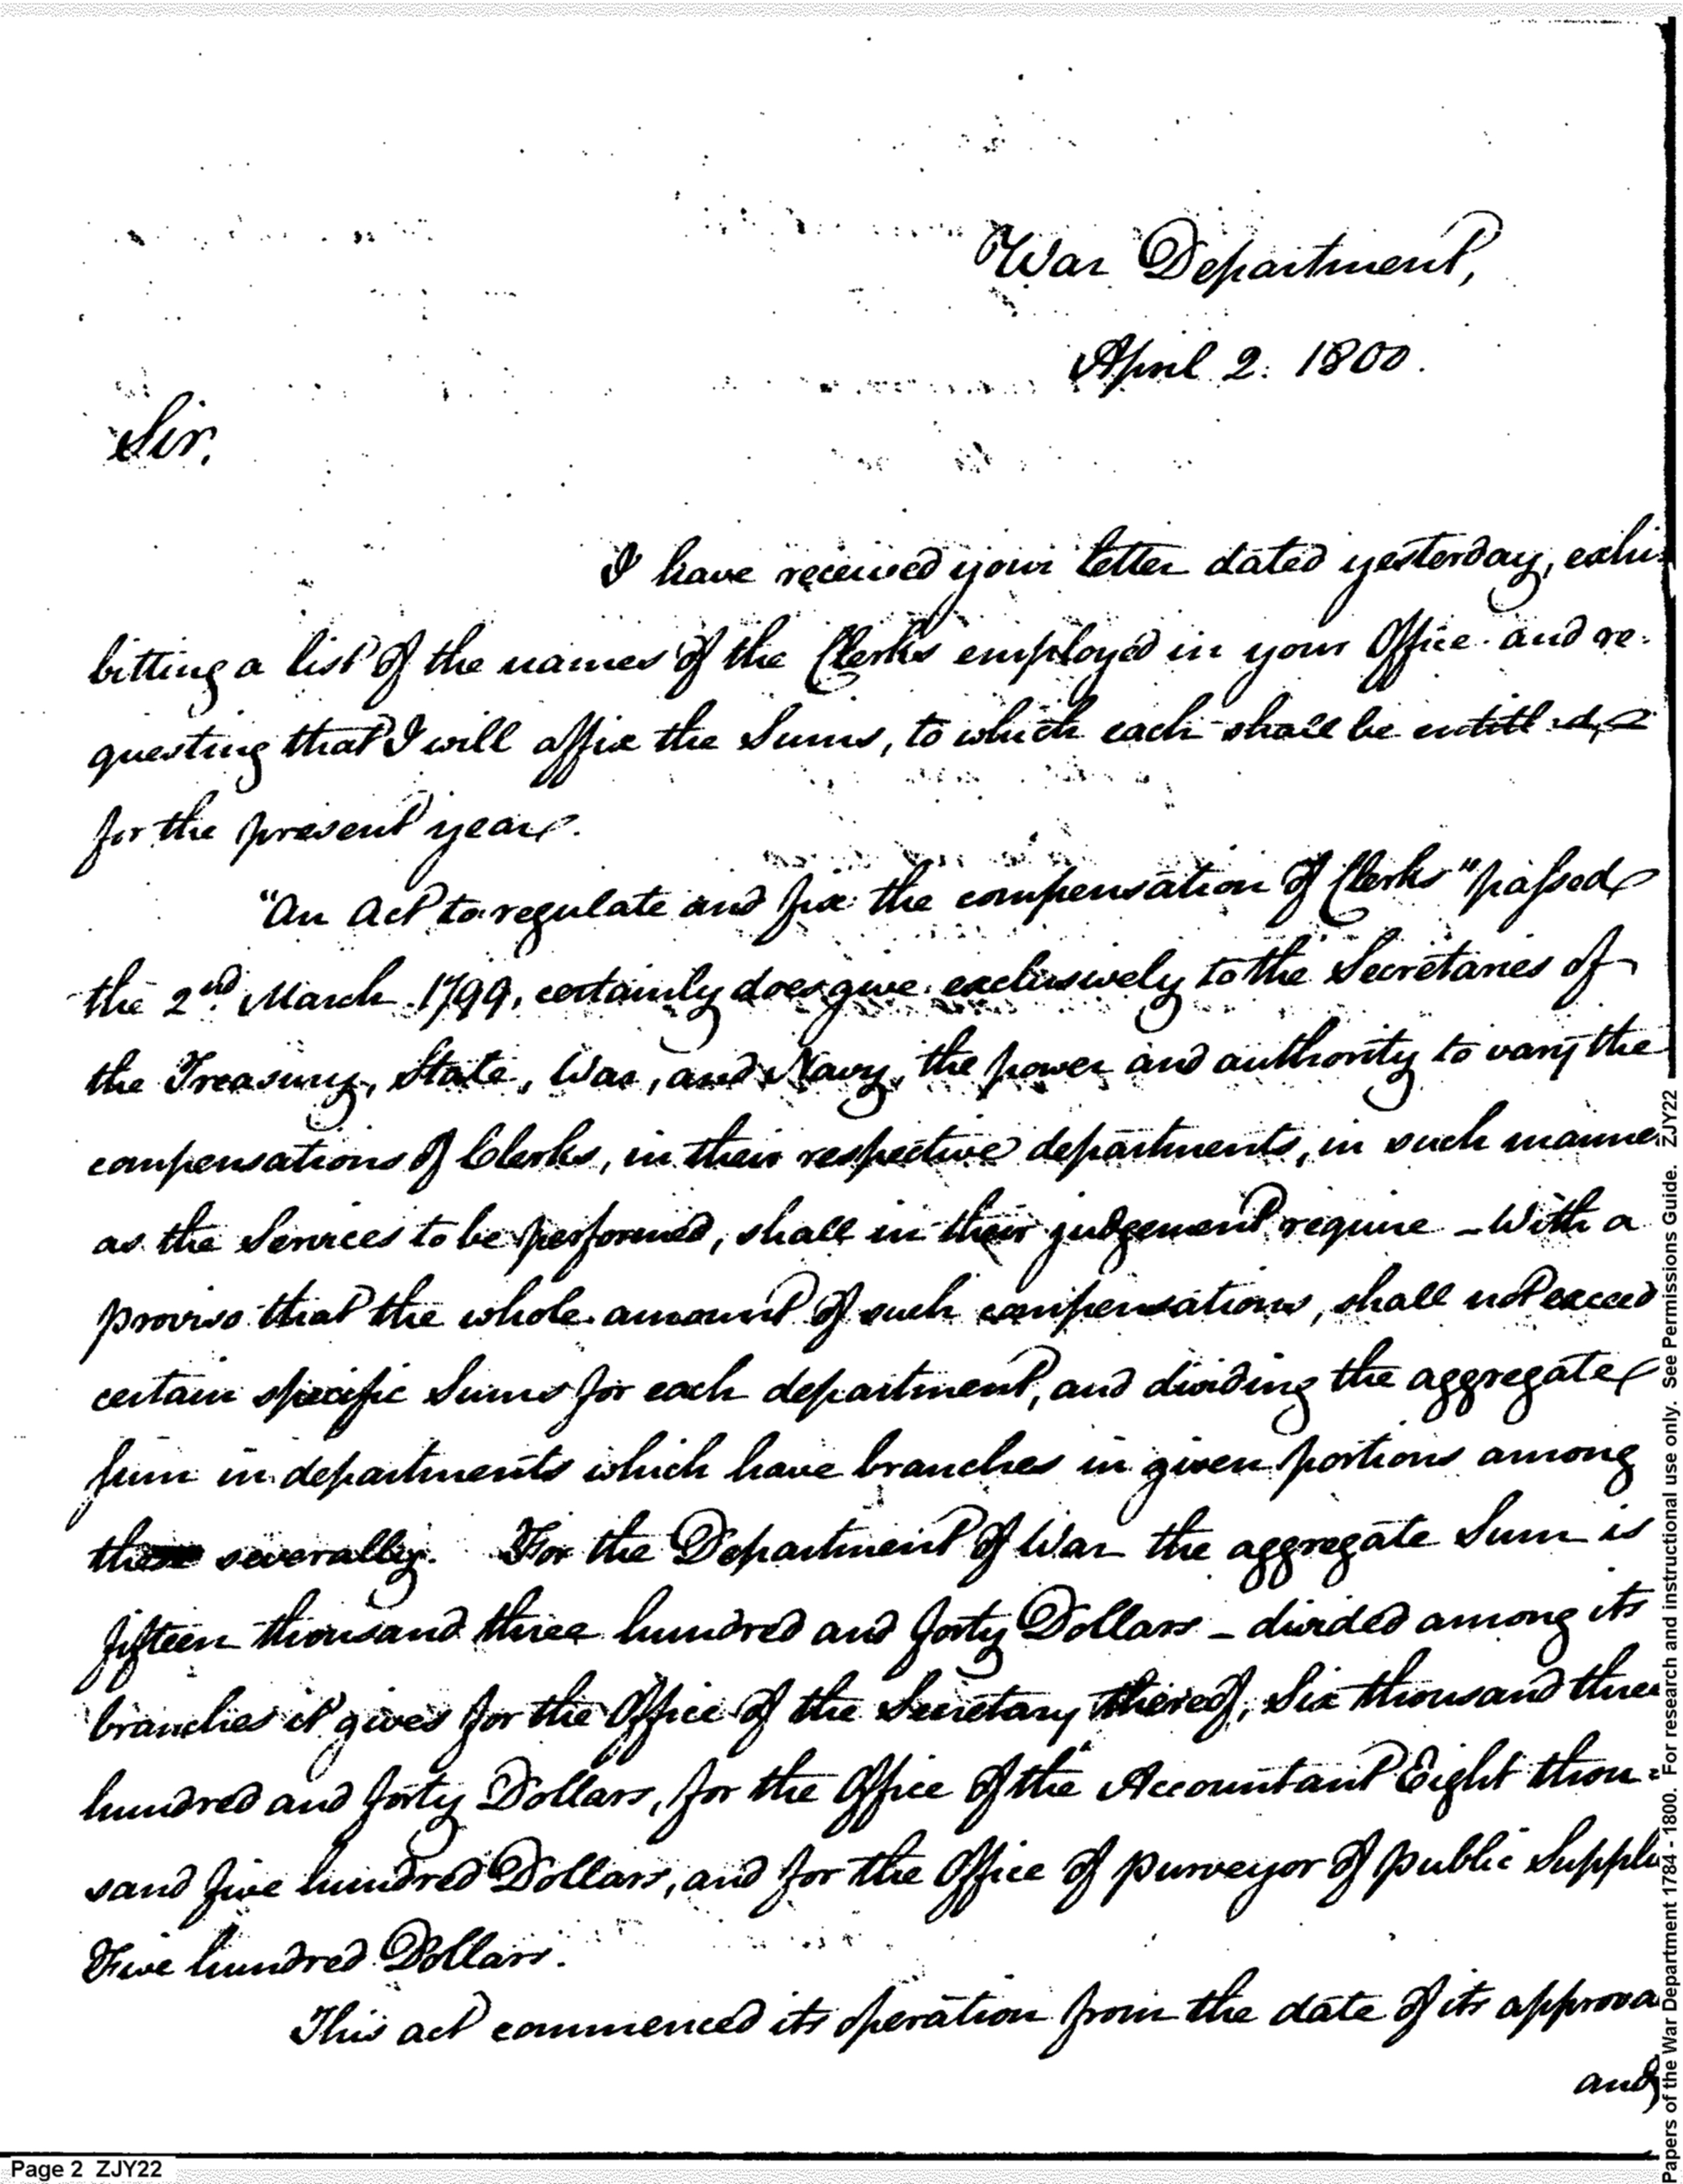 War Department,
April 2. 1800.
Sir,
I have received your letter dated yesterday, exhi-
bitting a list of the names of the Clerks employed in your Office and re-
questing that I will affix the Sums, to which each shall be entitled,
for the present year.
"An Act to regulate and fix the compensation of Clerks" passed
the 2nd. March 1799, certainly does give exclusively to the Secretaries of
the Treasury, State, War, and Navy, the power and authority to vary the
compensations of Clerks, in their respective departments, in such manner
as the Services to be performed, shall in their judgement require - With a
proviso that the whole amount of such compensations, shall not exceed
certain specific Sums for each department, and dividing the aggregate
sum in departments which have branches in given portions among
them severally. For the Department of War the aggregate Sum is
fifteen thousand three hundred and forty Dollars - divided among its
branches it gives for the Office of the Secretary thereof, Six thousand three
hundred and forty Dollars, for the Office of the Accountant Eight thou=
sand five hundred Dollars, and for the Office of purveyor of public Supplies
Five hundred Dollars.
This act commenced its operation from the date of its approva
and
Page 2 ZJY22
Papers of the War Department 1784 - 1800. For research and instructional use only. See Permissions Guide. ZJY22